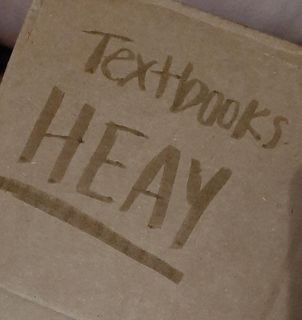 Textbooks
HEAY